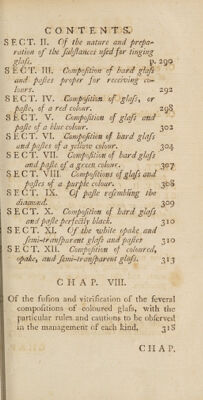 CONTENTS.
SECT. II. Of the nature and prepa-
ration of the ſubſtances uſed for tinging
glaſs. p. 290
SECT. III. Compoſition of hard glaſs
and paſtes proper for receiving co-
lours. 292
SECT. IV. Compoſition of glaſs, or
paſte, of a red colour. 298
SECT. V. Compoſition of glaſs and
paſte of a blue colour. 302
SECT. VI. Compoſition of hard glaſs
and paſtes of a yellow colour. 304
SECT. VII. Compoſition of hard glaſs
and paſte of a green colour. 307
SECT. VIII. Compoſitions of glaſs and
paſtes of a purple colour. 308
SECT. IX. Of paſte reſembling the
diamond. 309
SECT. X. Compoſition of hard glaſs
and paſte perfectly black. 310
SECT. XI. Of the white opake and
ſemi-tranſparent glaſs and paſtes 310
SECT. XII. Compoſition of coloured,
opake, and ſemi-tranſparent glaſs. 313
CHAP. VIII.
Of the fuſion and vitrification of the ſeveral
compoſitions of coloured glaſs, with the
particular rules and cautions to be obſerved
in the management of each kind. 318
CHAP.